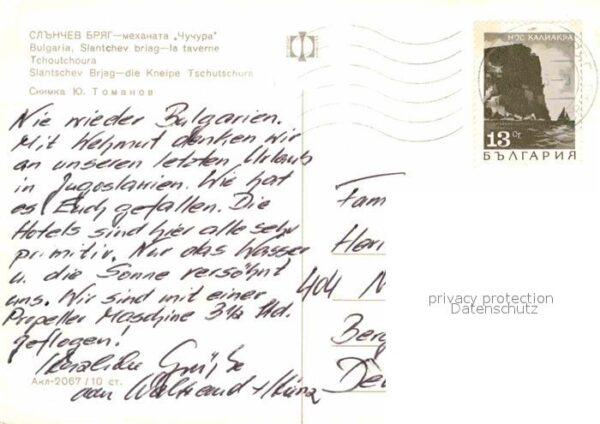 СЛЪНЧЕВ БРЯГ—механата „Чучура"
Bulgaria, Slantchev briag—la taverne
Tchoutchoura
Slantschev Brjag—die Kneipe Tschutschura
Снимка Ю. Томанов
НОС КАЛИАКРА
13 Ст.
БЪЛГАРИЯ
Nie wieder Bulgarien.
Mit Wehmut denken wir
an unseren letzten Urlaub
in Jugoslawien. Wie hat
es Euch gefallen. Die
Hotels sind hier alle sehr
primitiv. Nur das Wasser
u. die Sonne versöhnt
uns. Wir sind mit einer
Propeller Maschine 3½ Std.
geflogen!
Herzliche Grüße
von Waltraud + Heinz
Акл-2067/10 ст.
Fam
Herr
404 N
Berg
Deu
privacy protection
Datenschutz